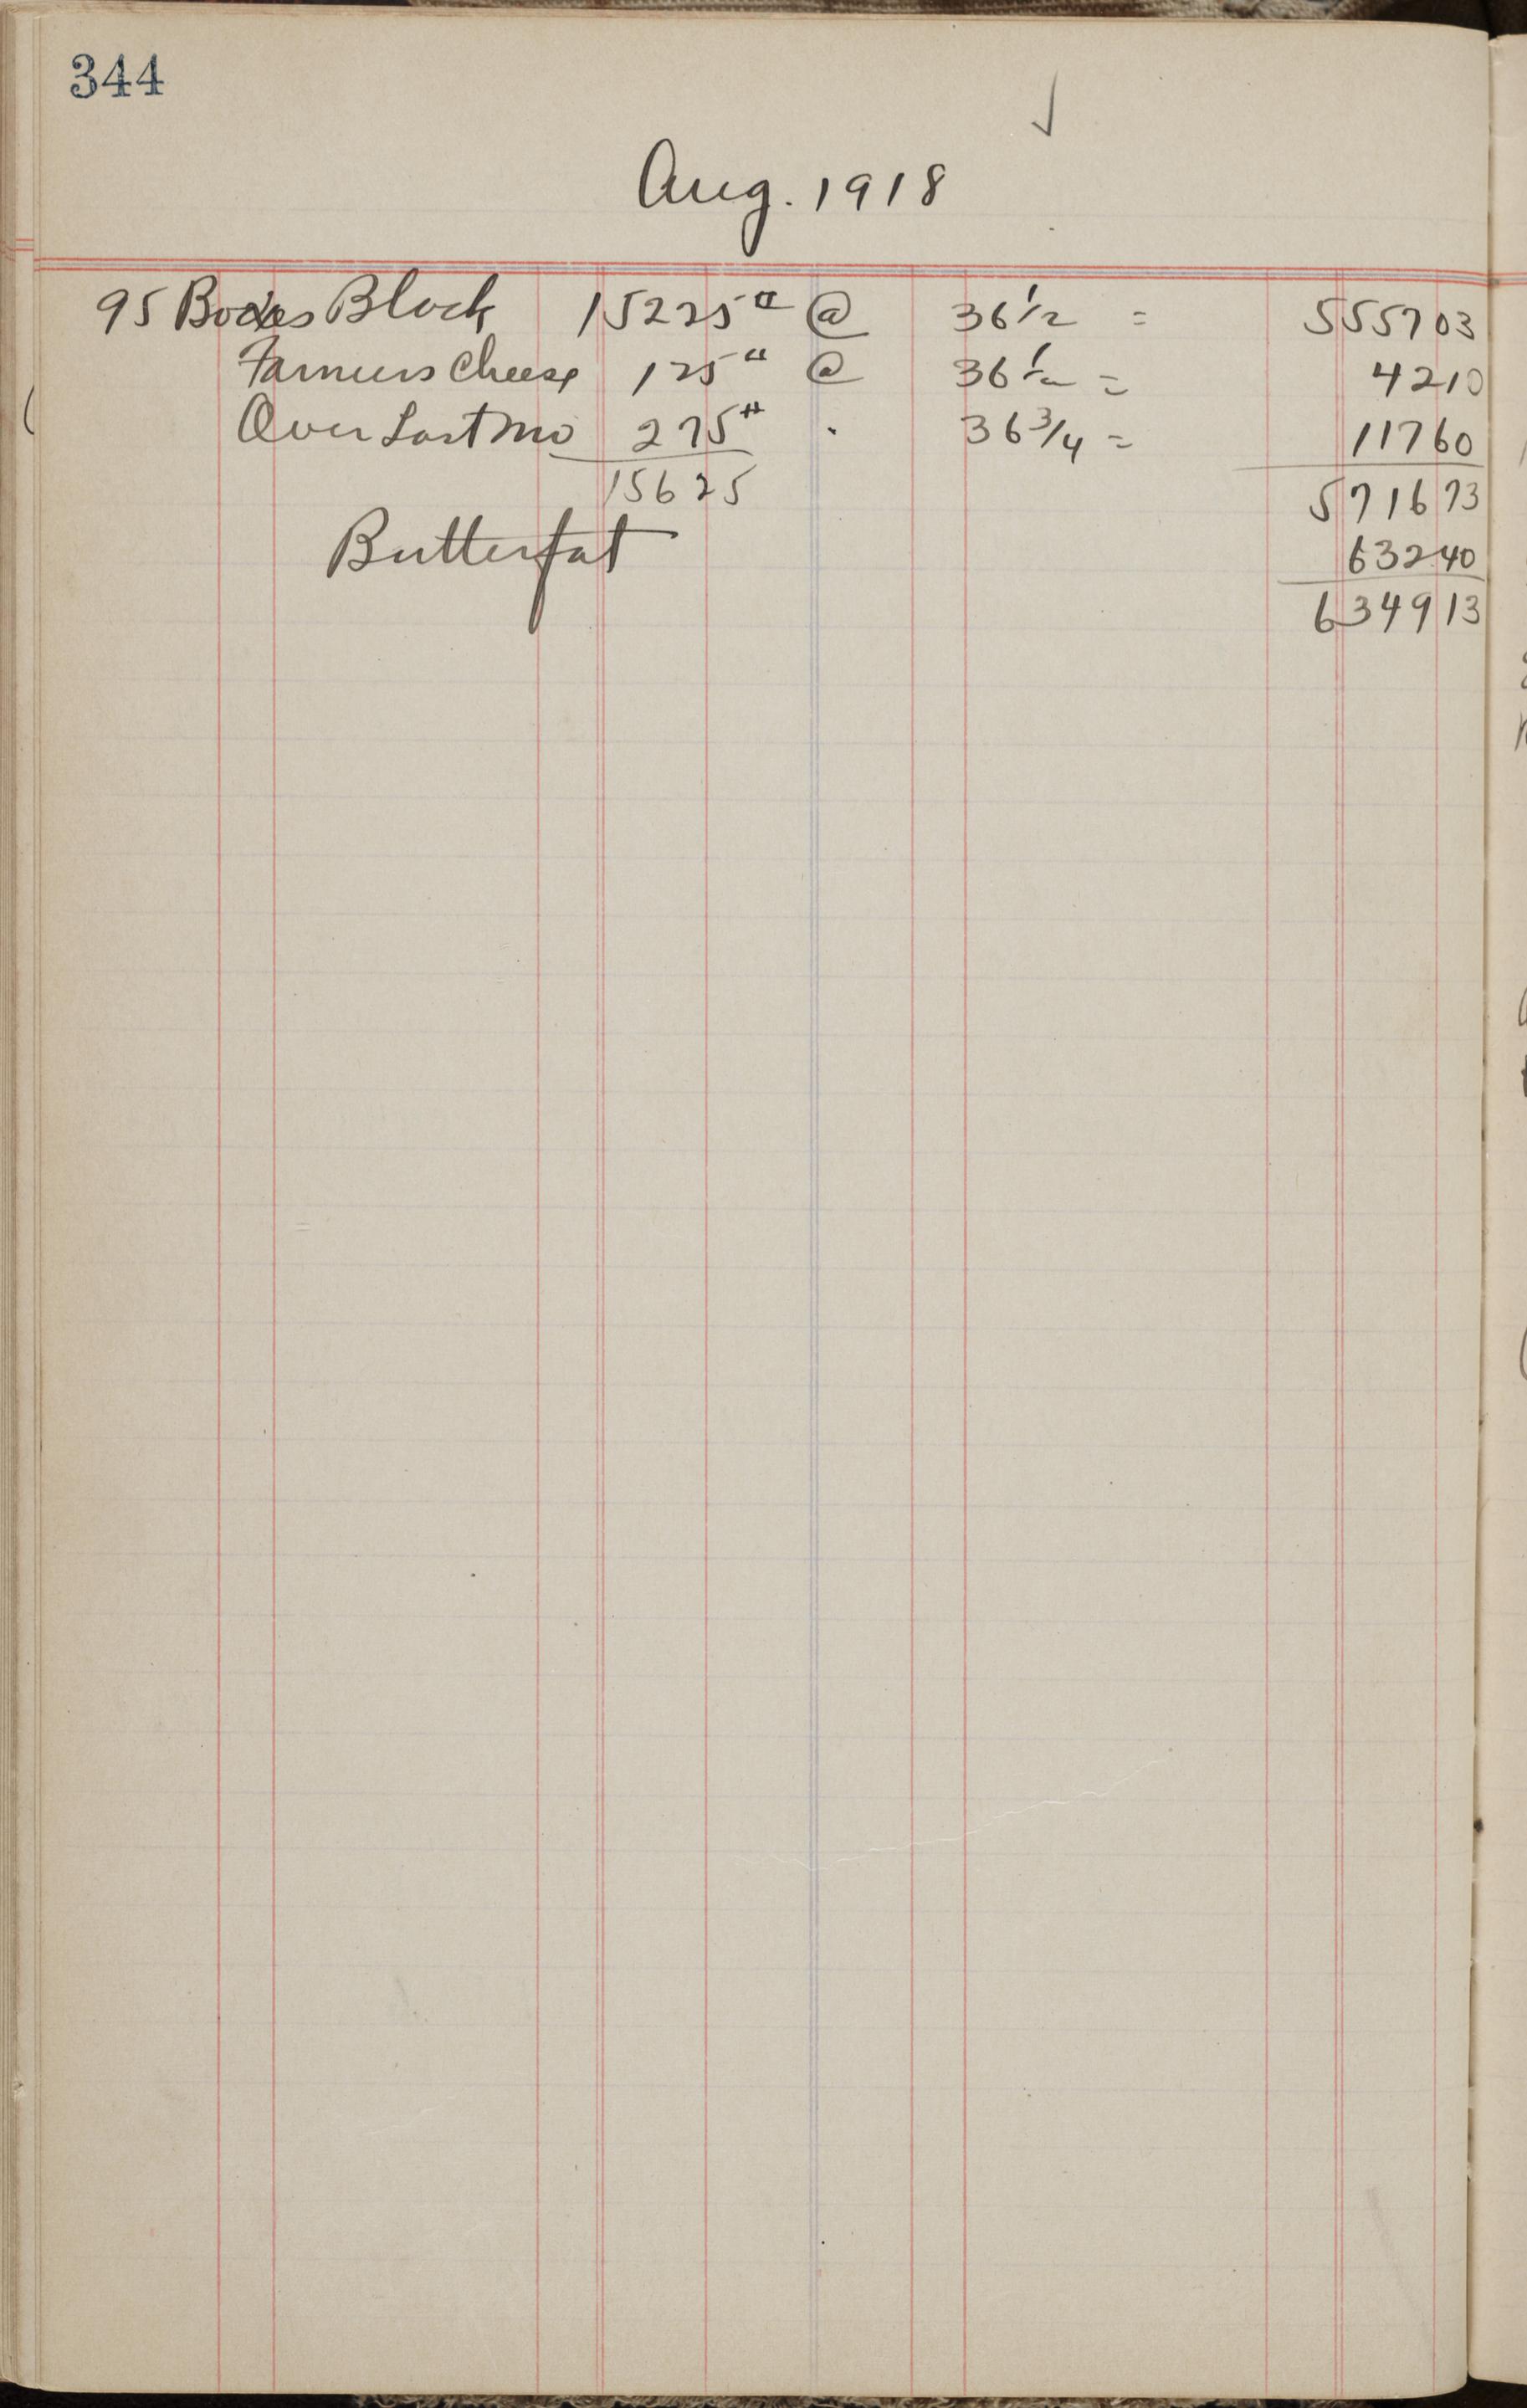 344
Aug. 1918
95 Boxes Block 15225# @ 36 1/2 = 555703
Farmers Cheese 125# @ 36 1/2 = 4210
Over Last Mo 275# . 36 3/4 = 11760
15625 571673
Butterfat 63240
634913